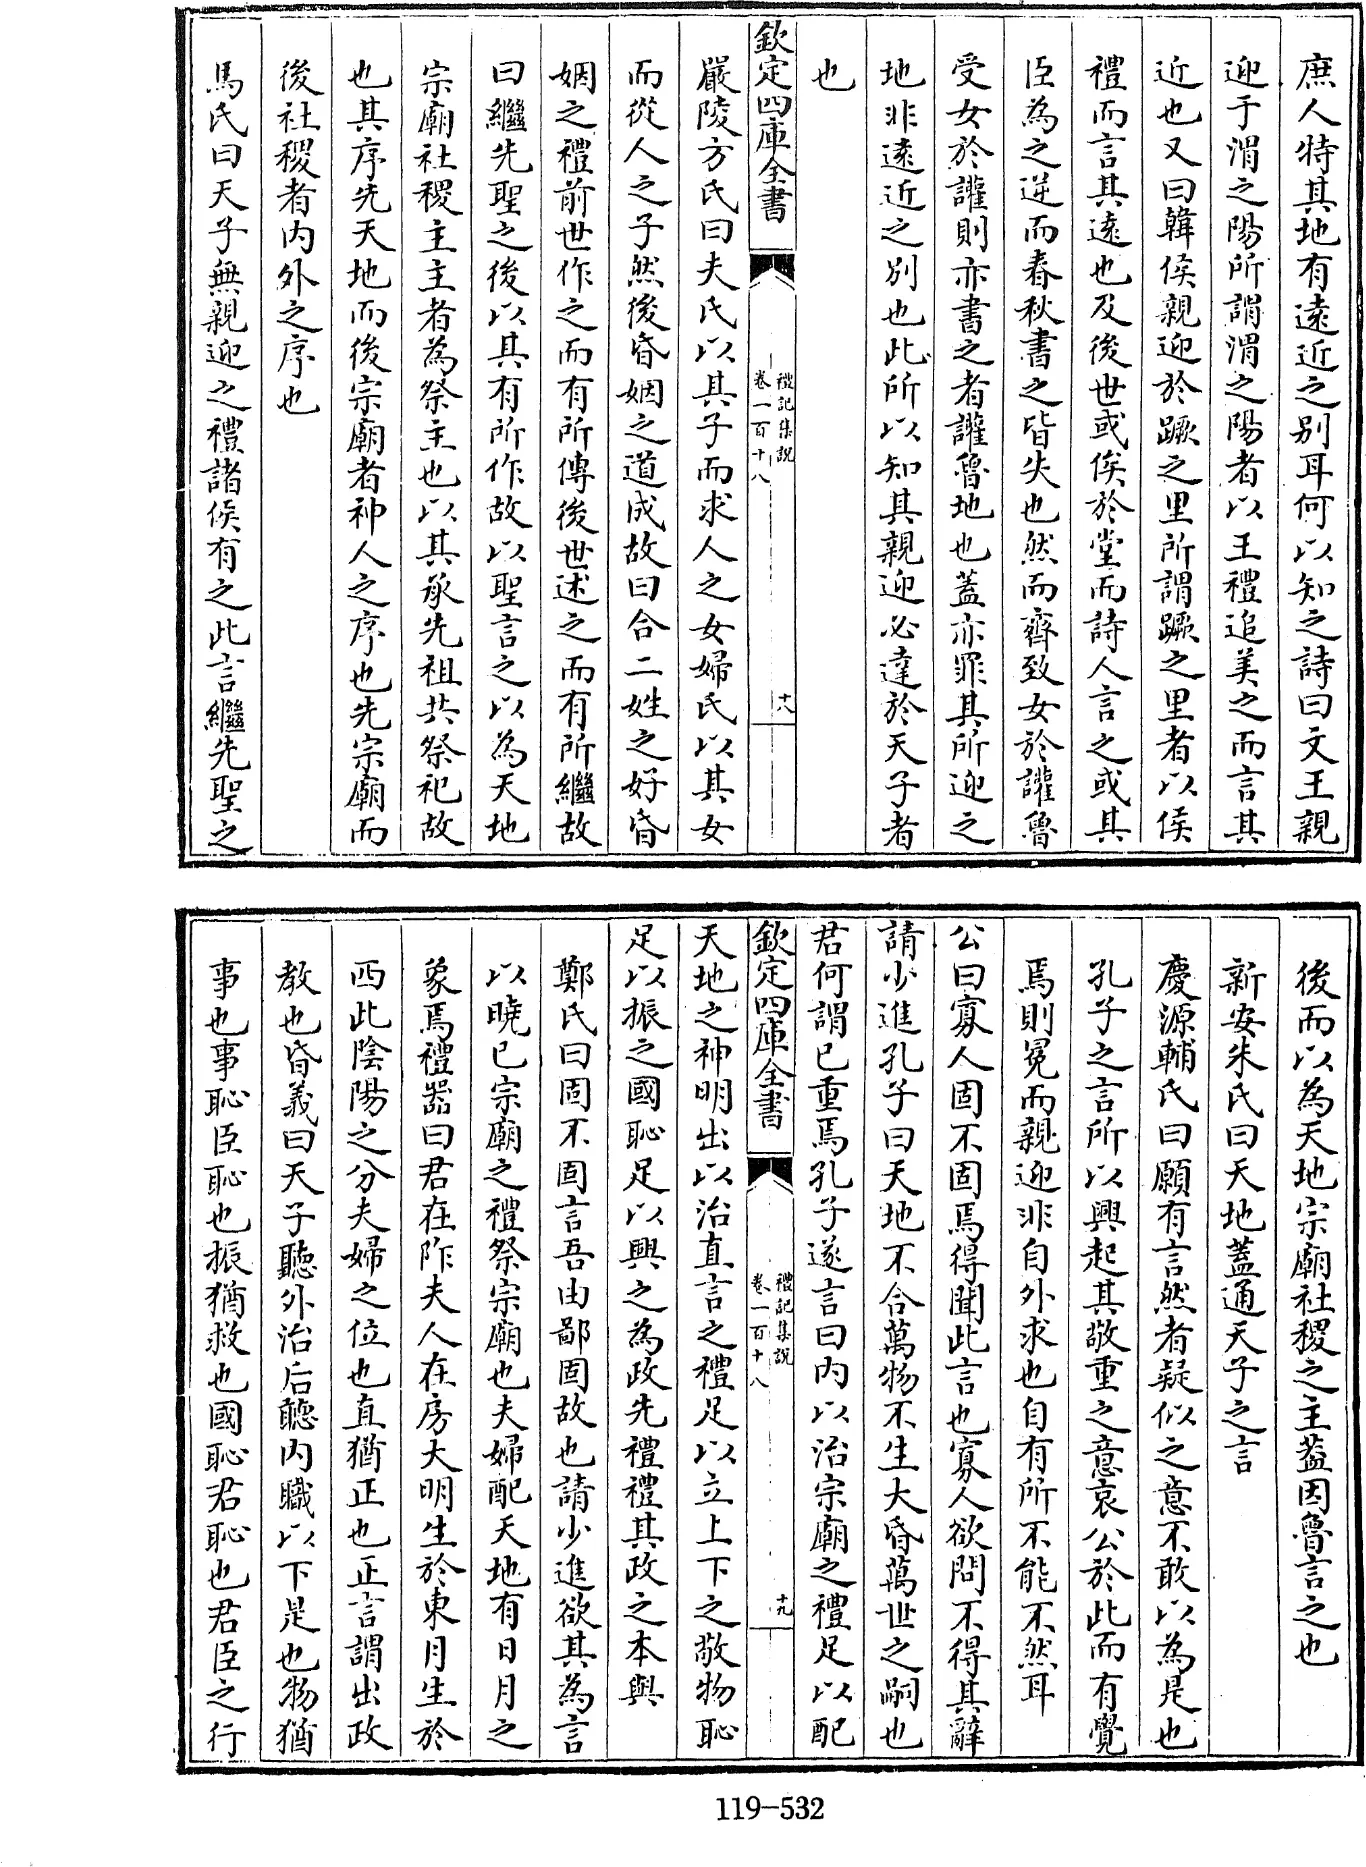 庶人特其地有遠近之别耳何以知之詩曰文王親
迎于渭之陽所謂渭之陽者以王禮追美之而言其
近也又曰韓侯親迎於蹶之里所謂蹶之里者以侯
禮而言其遠也及後世或俟於堂而詩人言之或其
臣為之逆而春秋書之皆失也然而齊致女於讙魯
受女於讙則亦書之者讙魯地也蓋亦罪其所迎之
地非遠近之别也此所以知其親迎必達於天子者
也
欽定四庫全書
禮記集說
卷一百十八
十八
嚴陵方氏曰夫氏以其子而求人之女婦氏以其女
而從人之子然後昏姻之道成故曰合二姓之好昏
姻之禮前世作之而有所傳後世述之而有所繼故
曰繼先聖之後以其有所作故以聖言之以為天地
宗廟社稷主主者為祭主也以其承先祖共祭祀故
也其序先天地而後宗廟者神人之序也先宗廟而
後社稷者内外之序也
馬氏曰天子無親迎之禮諸侯有之此言繼先聖之
後而以為天地宗廟社稷之主蓋因魯言之也
新安朱氏曰天地蓋通天子之言
慶源輔氏曰願有言然者疑似之意不敢以為是也
孔子之言所以興起其敬重之意哀公於此而有覺
焉則冕而親迎非自外求也自有所不能不然耳
公曰寡人固不固焉得聞此言也寡人欲問不得其辭
請少進孔子曰天地不合萬物不生大昏萬世之嗣也
君何謂已重焉孔子遂言曰内以治宗廟之禮足以配
欽定四庫全書
禮記集說
卷一百十八
十九
天地之神明出以治直言之禮足以立上下之敬物恥
足以振之國恥足以興之為政先禮禮其政之本與
鄭氏曰固不固言吾由鄙固故也請少進欲其為言
以曉已宗廟之禮祭宗廟也夫婦配天地有日月之
象焉禮器曰君在阼夫人在房大明生於東月生於
西此陰陽之分夫婦之位也直猶正也正言謂出政
教也昏義曰天子聽外治后聽内職以下是也物猶
事也事恥臣恥也振猶救也國恥君恥也君臣之行
119-532